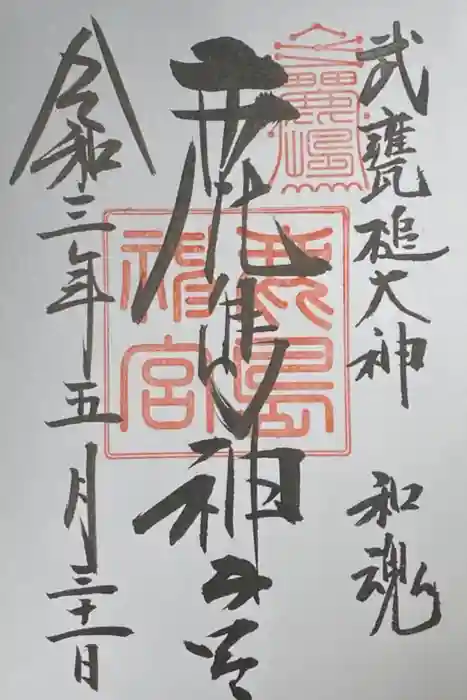 武甕槌大神 和魂
鹿島神宮
鹿嶋
鹿島神宮
令和三年五月三十一日